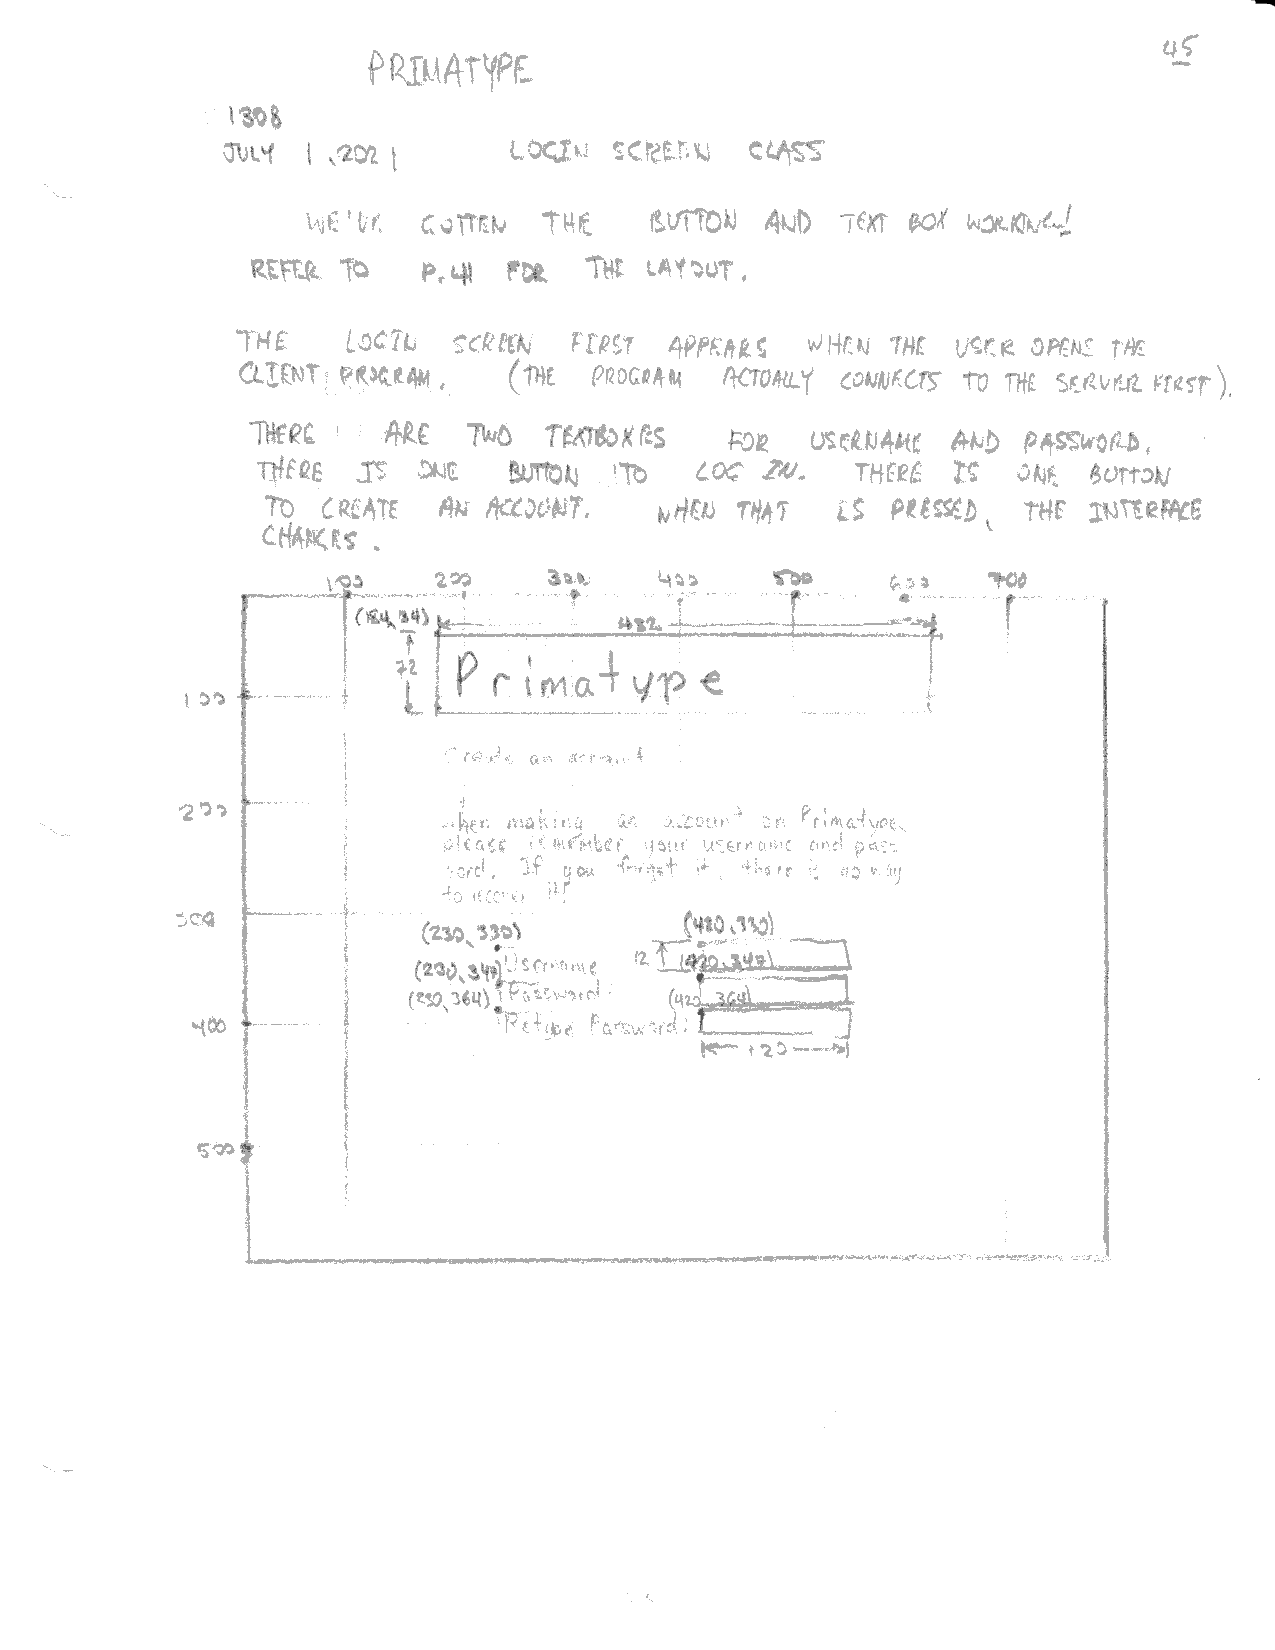 45
PRIMATYPE
1308
JULY 1, 2021 LOGIN SCREEN CLASS
WE'VE GOTTEN THE BUTTON AND TEXT BOX WORKING!
REFER TO P. 41 FOR THE LAYOUT.
THE LOGIN SCREEN FIRST APPEARS WHEN THE USER OPENS THE
CLIENT PROGRAM. (THE PROGRAM ACTUALLY CONNECTS TO THE SERVER FIRST).
THERE ARE TWO TEXTBOXES FOR USERNAME AND PASSWORD.
THERE IS ONE BUTTON TO LOG IN. THERE IS ONE BUTTON
TO CREATE AN ACCOUNT. WHEN THAT IS PRESSED, THE INTERFACE
CHANGES.
100 200 300 400 500 600 700
(184, 34) 482
72
Primatype
100
Create an account
200
When making an account on Primatype,
please remember your username and pass
word. If you forget it, there is no way
to recover it!
300
(230, 330) (420, 330)
12
(230, 347) Username (420, 347)
(230, 364) Password: (420, 364)
400
Retype Password:
120
500